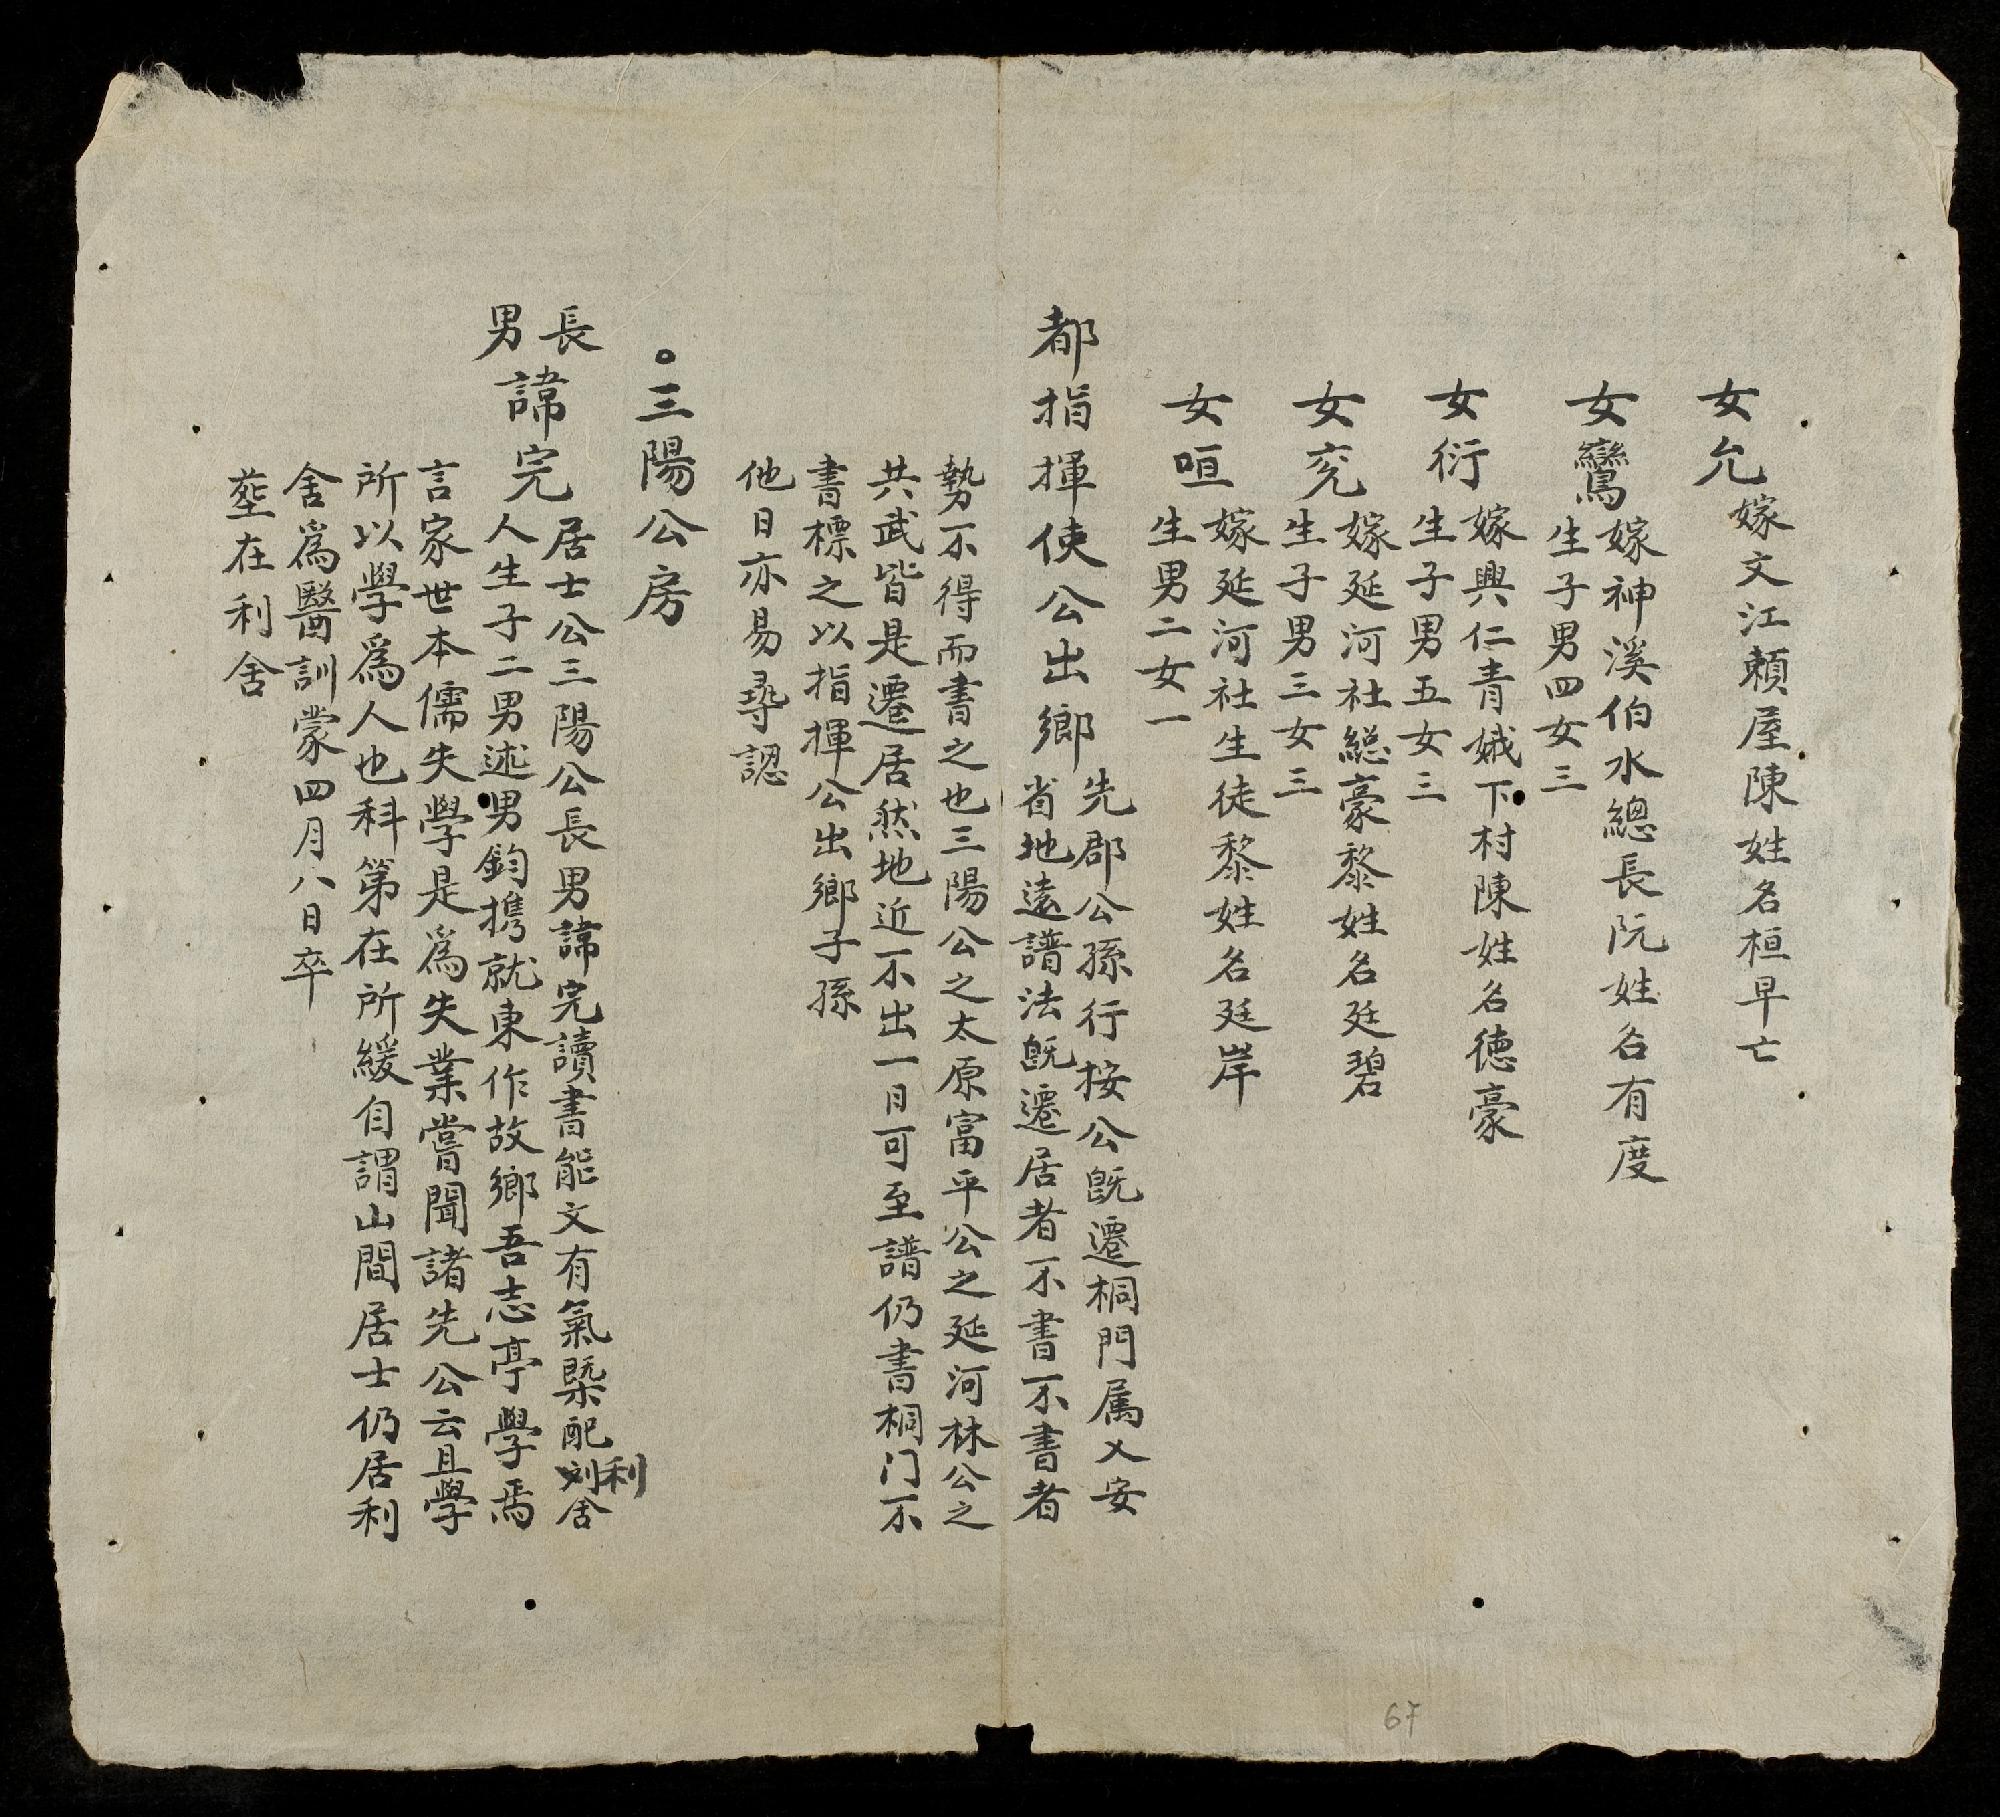 女允嫁文江賴屋陳姓名桓早亡
女鸞嫁神溪伯水總長阮姓名有度
生子男四女三
女衍嫁興仁青娥下村陳姓名德豪
生子男五女三
女兖嫁延河社総豪黎姓名廷碧
生子男三女三
女咺嫁延河社生徒黎姓名廷岸
生男二女一
都指揮使公出鄉先郡公孫行按公既遷桐門属乂安
省地遠譜法既遷居者不書不書者
勢不得而書之也三陽公之太原富平公之延河林公之
共武皆是遷居然地近不出一日可至譜仍書桐门不
書標之以指揮公出鄉子孫
他日亦易尋認
○三陽公房
長男諱完居士公三陽公長男諱完讀書能文有氣槩配利舍
人生子二男述男鈞携就東作故鄉吾志亭學焉
言家世本儒失學是爲失業嘗聞諸先公云且學
所以學爲人也科第在所緩自謂山間居士仍居利
舍爲醫訓蒙四月八日卒
塟在利舍
67